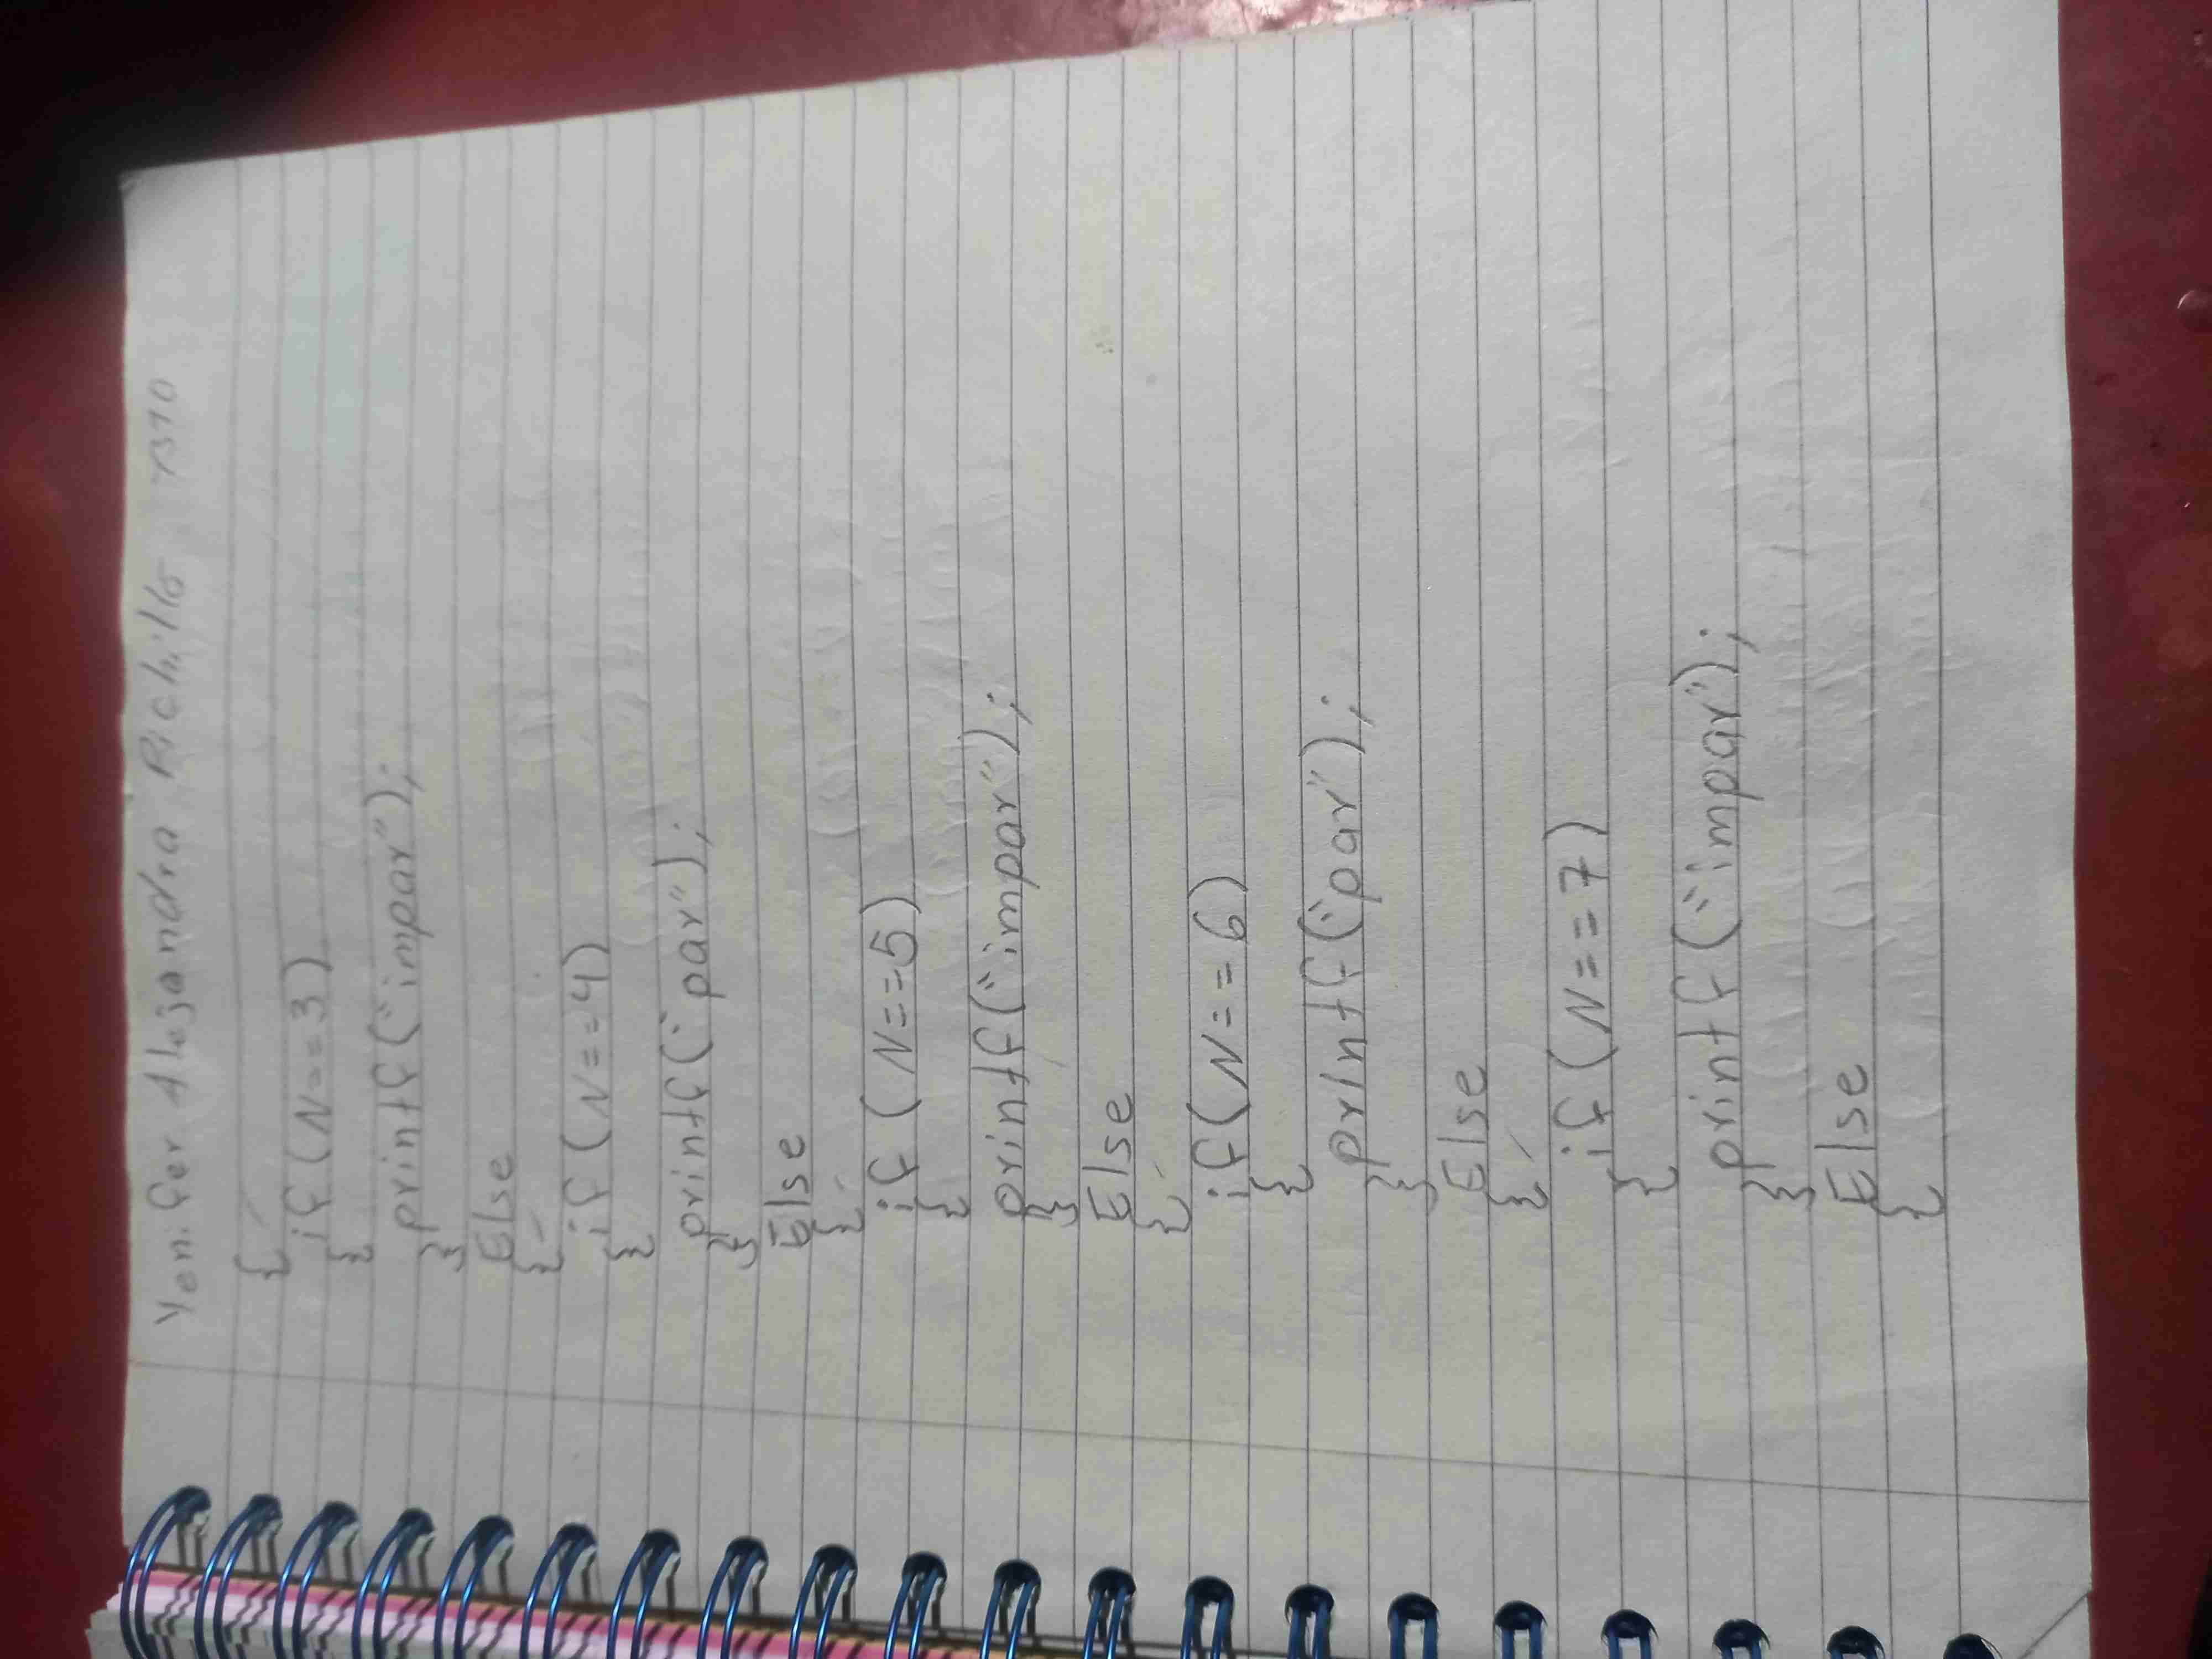 Yenifer Alejandra Pichillo
{
if (N==3)
{
printf("impar");
}
Else
{
if (N==4)
{
printf("par");
}
Else
{
if (N==5)
{
printf("impar");
}
Else
{
if (N==6)
{
printf("par");
}
Else
{
if (N==7)
{
printf("impar");
}
Else
{